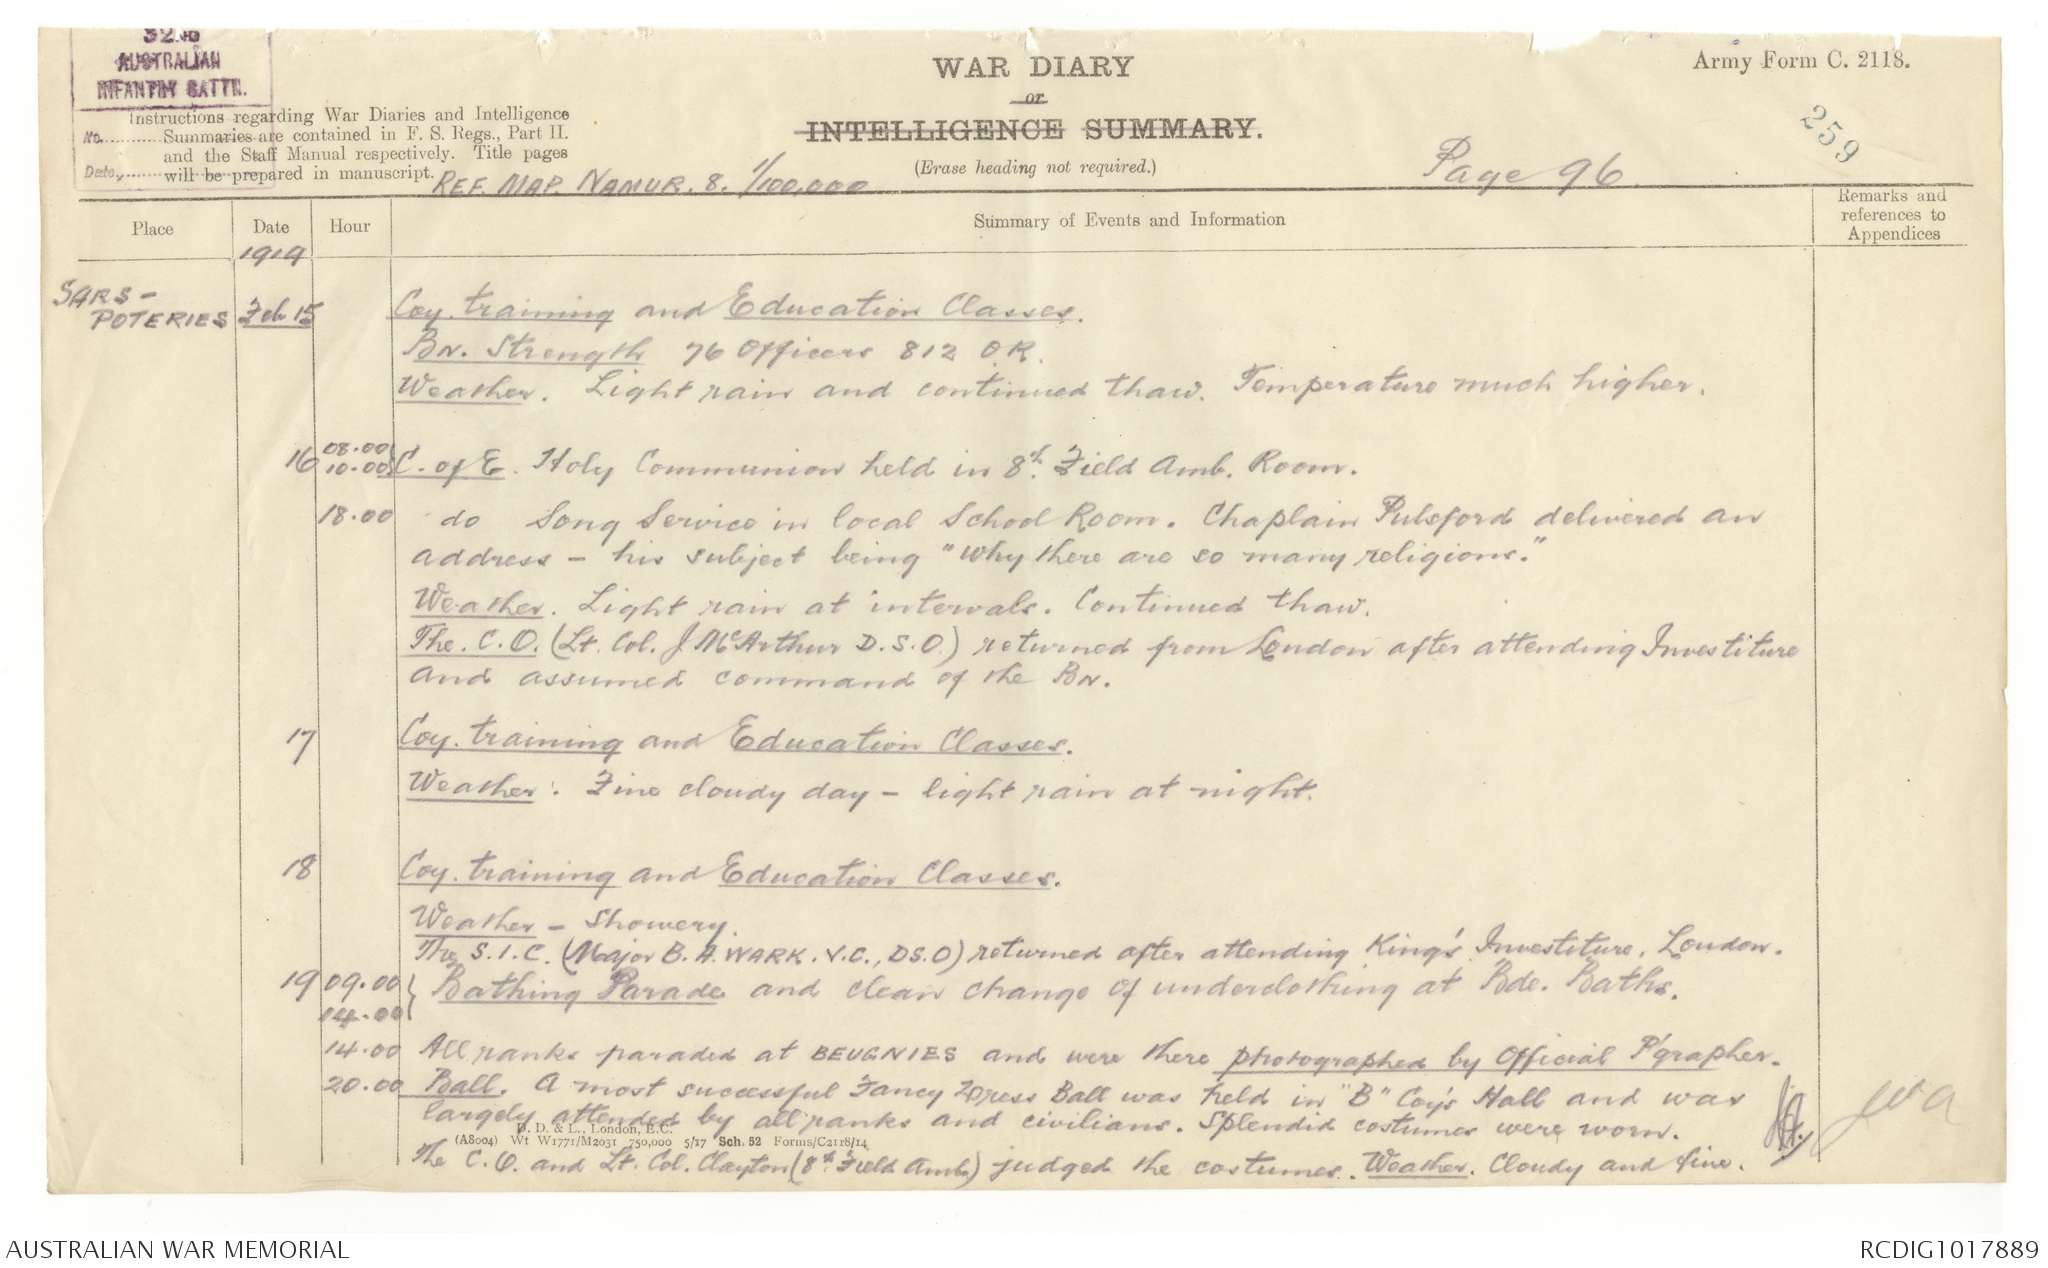 32nd
AUSTRALIAN
INFANTRY BATTN.
No.
Date,
Instructions regarding War Diaries and Intelligence
Summaries are contained in F. S. Regs., Part II.
and the Staff Manual respectively. Title pages
will be prepared in manuscript.
WAR DIARY
or
INTELLIGENCE SUMMARY.
(Erase heading not required.)
Army Form C. 2118.
259
REF. MAP. NAMUR. 8. 1/100,000
Page 96
Place
Date
Hour
Summary of Events and Information
Remarks and
references to
Appendices
1919
SARS-
POTERIES Feb 15 Coy. training and Education Classes.
Bn. Strength 76 Officers 812 O.R.
Weather. Light rain and continued thaw. Temperature much higher.
16 08.00
10.00 C. of E. Holy Communion held in 8th. Field Amb. Room.
18.00 do Song Service in local School Room. Chaplain Pulsford delivered an
address - his subject being "Why there are so many religions."
Weather. Light rain at intervals. Continued thaw.
The. C.O. (Lt. Col. J McArthur D.S.O.) returned from London after attending Investiture
and assumed command of the Bn.
17 Coy. training and Education Classes.
Weather: Fine cloudy day - light rain at night.
18 Coy. training and Education Classes.
Weather - Showery.
The S.I.C. (Major B. A. WARK. V.C., DSO) returned after attending King's Investiture, London.
19 09.00 Bathing Parade and clean change of underclothing at Bde. Baths.
14.00
14.00 All ranks paraded at BEUGNIES and were there photographed by Official P'grapher.
20.00 Ball. A most successful Fancy Dress Ball was held in "B" Coy's Hall and was
largely attended by all ranks and civilians. Splendid costumes were worn.
D. D. & L., London, E.C.
(A8004) Wt W1771/M2031 750,000 5/17 Sch. 52 Forms/C2118/14
The C.O. and Lt. Col. Clayton (8th. Field Amb.) judged the costumes. Weather. Cloudy and fine.
AUSTRALIAN WAR MEMORIAL
RCDIG1017889